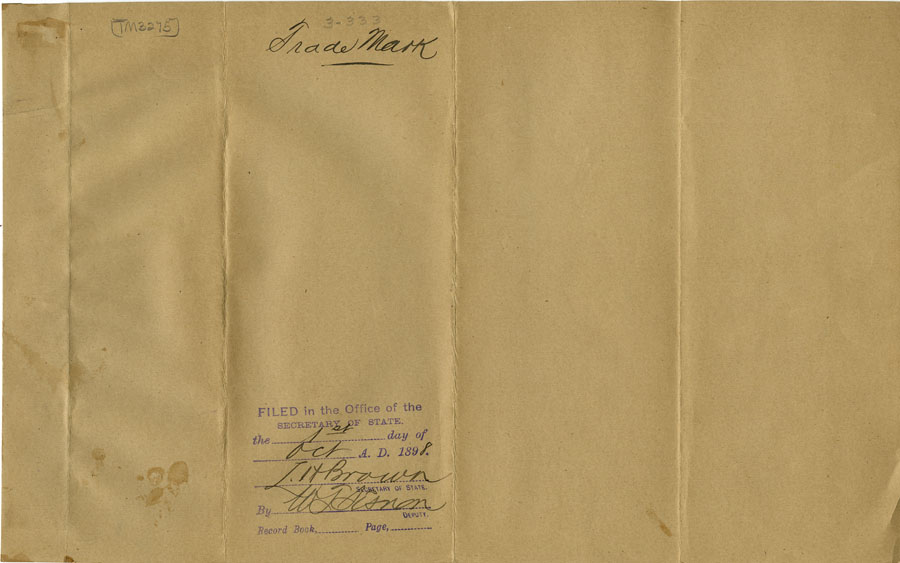 TM3275
3-333
Trade Mark
FILED in the Office of the
SECRETARY OF STATE.
the 1st day of
Oct A. D. 1898.
L. H Brown
SECRETARY OF STATE.
By
DEPUTY.
Record Book Page,